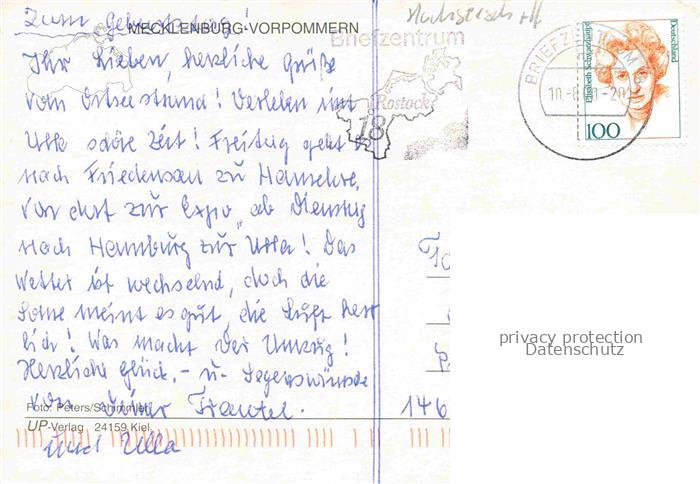 Zum Geburtstag!
MECKLENBURG-VORPOMMERN
Ihr Lieben, herzliche Grüße
vom Ostseestrand! Verleben mit
Ulla schöne Zeit! Freitag geht's
nach Friedensau zu
von dort zur Expo, ab Dienstag
nach Hamburg zur Ulla! Das
Wetter ist wechselnd, doch die
Sonne meint es gut, die Luft herr
lich! Was macht der Umzug!
Herzliche Glück.- u- Segenswünsche
von Deiner Trautel.
und Ulla
Foto: Peters/Schimmler
UP-Verlag 24159 Kiel
Briefzentrum
Rostock
18
BRIEFZENTRUM
10.-8
Deutschland
Elisabeth Schwarzhaupt
100
146
privacy protection
Datenschutz